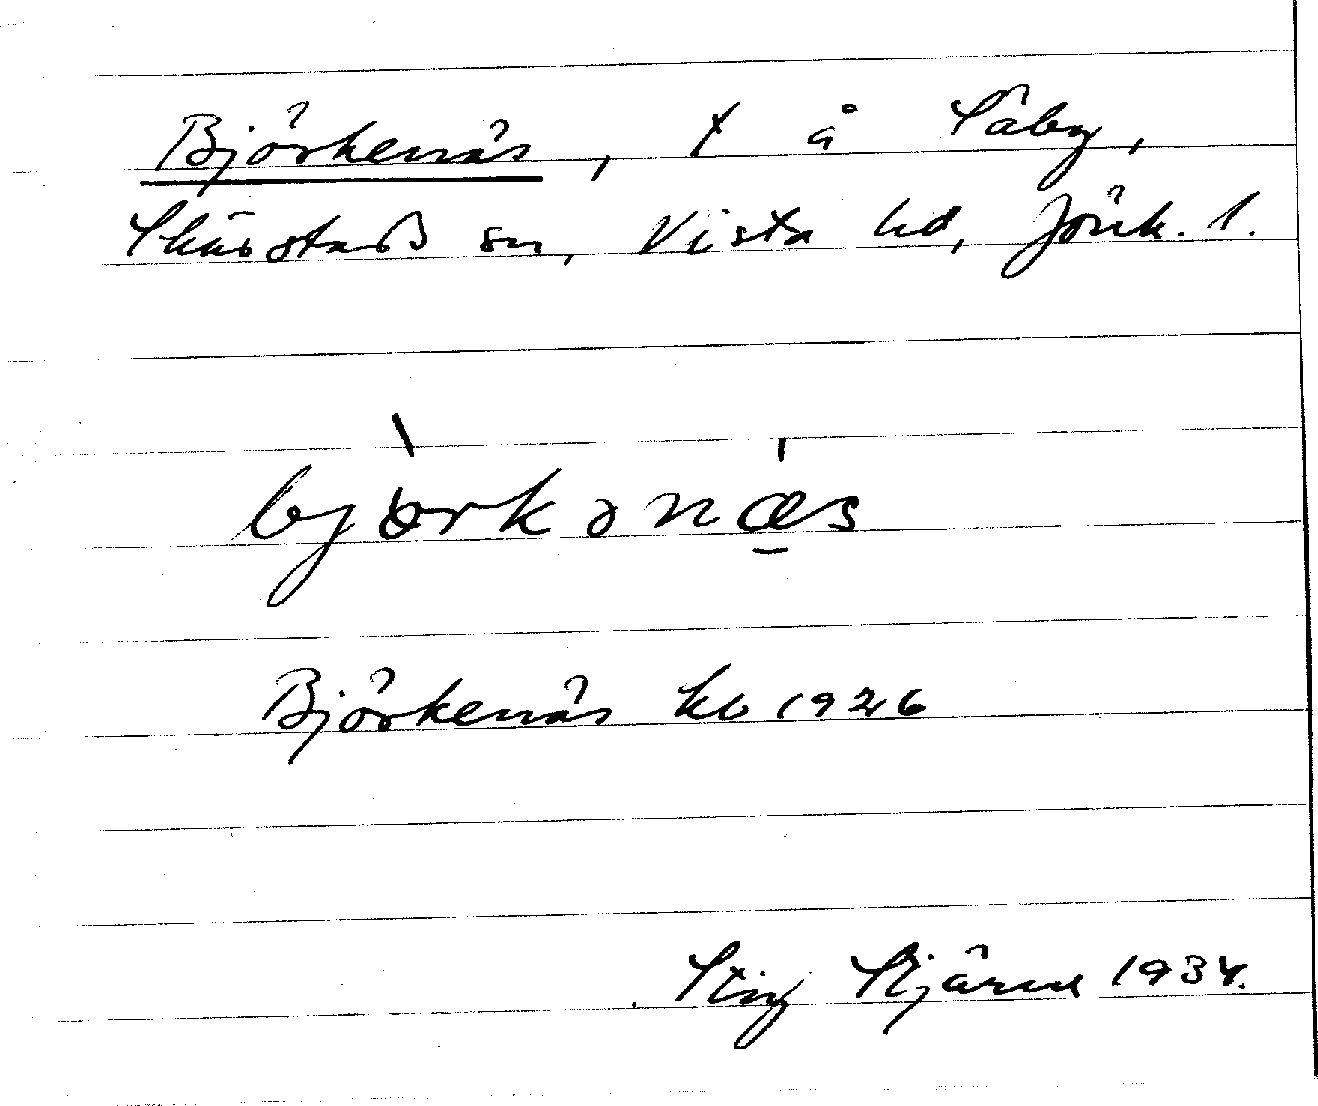 Björkenäs, t å Säby,
Skärstads sn, Vista hd, Jönk. l.
bjòrkənæs
Björkenäs kb 1926
Stig Stjärne 1934.